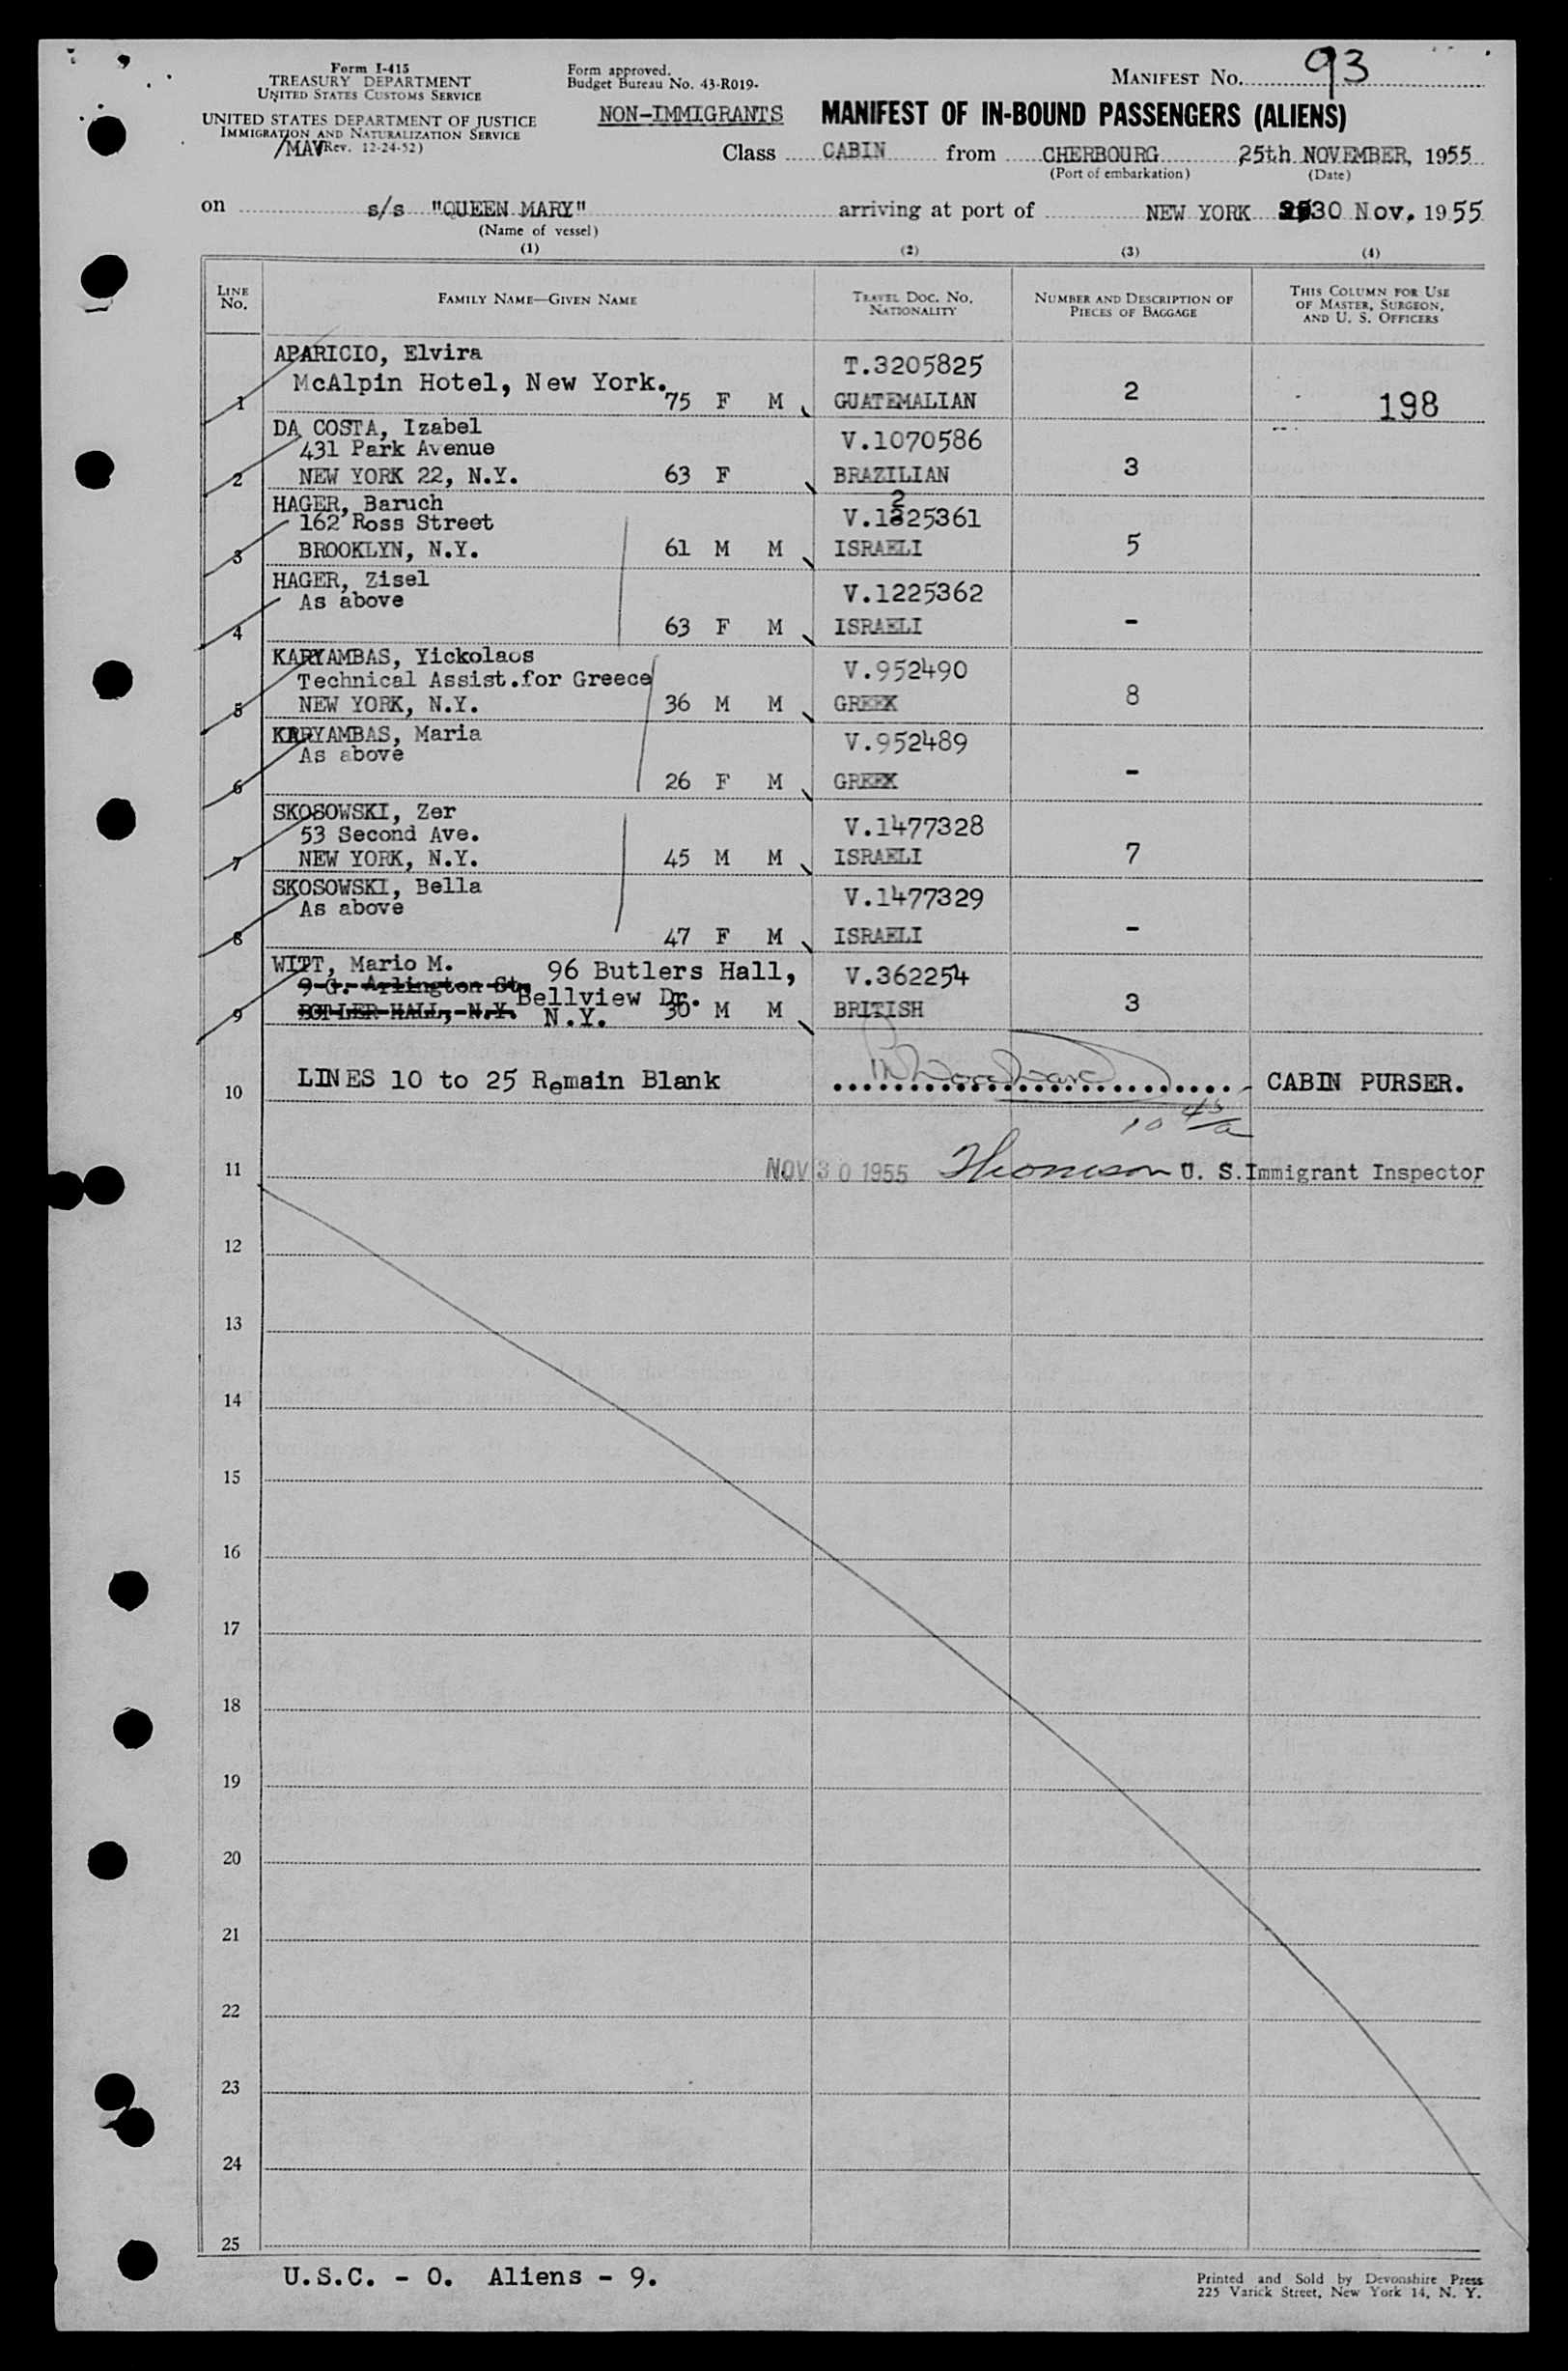 Form I-415
TREASURY DEPARTMENT
UNITED STATES CUSTOMS SERVICE
UNITED STATES DEPARTMENT OF JUSTICE
IMMIGRATION AND NATURALIZATION SERVICE
/MAV (Rev. 12-24-52)
Form approved.
Budget Bureau No. 43-R019-
NON-IMMIGRANTS
MANIFEST No. 93
MANIFEST OF IN-BOUND PASSENGERS (ALIENS)
Class CABIN from CHERBOURG 25th NOVEMBER, 1955
(Port of embarkation) (Date)
on s/s "QUEEN MARY" arriving at port of NEW YORK 30 Nov. 1955
(Name of vessel)
(1) (2) (3) (4)
LINE No. FAMILY NAME—GIVEN NAME TRAVEL DOC. No. NATIONALITY NUMBER AND DESCRIPTION OF PIECES OF BAGGAGE THIS COLUMN FOR USE OF MASTER, SURGEON, AND U. S. OFFICERS
APARICIO, Elvira T.3205825
McAlpin Hotel, New York.
1 75 F M GUATEMALIAN 2 198
DA COSTA, Izabel V.1070586
431 Park Avenue
2 NEW YORK 22, N.Y. 63 F BRAZILIAN 3
HAGER, Baruch
162 Ross Street V.1225361
3 BROOKLYN, N.Y. 61 M M ISRAELI 5
HAGER, Zisel V.1225362
As above
4 63 F M ISRAELI -
KARYAMBAS, Yickolaos V.952490
Technical Assist.for Greece
5 NEW YORK, N.Y. 36 M M GREEK 8
KARYAMBAS, Maria V.952489
As above
6 26 F M GREEK -
SKOSOWSKI, Zer V.1477328
53 Second Ave.
7 NEW YORK, N.Y. 45 M M ISRAELI 7
SKOSOWSKI, Bella V.1477329
As above
8 47 F M ISRAELI -
WITT, Mario M. 96 Butlers Hall, V.362254
9 G. Arlington St. Bellview Dr.
9 BUTLER HALL, N.Y. N.Y. 30 M M BRITISH 3
10 LINES 10 to 25 Remain Blank CABIN PURSER.
10 45/a
11 NOV 30 1955 Thomson U. S. Immigrant Inspector
12
13
14
15
16
17
18
19
20
21
22
23
24
25
U.S.C. - 0. Aliens - 9.
Printed and Sold by Devonshire Press
225 Varick Street, New York 14, N. Y.